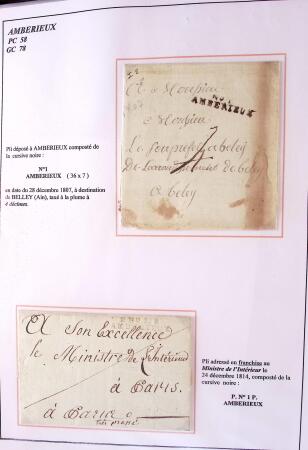 AMBERIEUX
PC 58
GC 78
Pli déposé à AMBERIEUX composté de
la cursive noire :
N°1
AMBERIEUX ( 36 x 7 )
en date du 28 décembre 1807, à destination
de BELLEY (Ain), taxé à la plume à
4 décimes.
A Monsieur
No 1
AMBERIEUX
Monsieur
Le
de beley
A beley
A Son Excellence
le Ministre de l'Intérieur
à Paris.
à Paris
très pressé
Pli adressé en franchise au
Ministre de l'Intérieur le
24 décembre 1814, composté de la
cursive noire :
P. N° 1 P.
AMBERIEUX